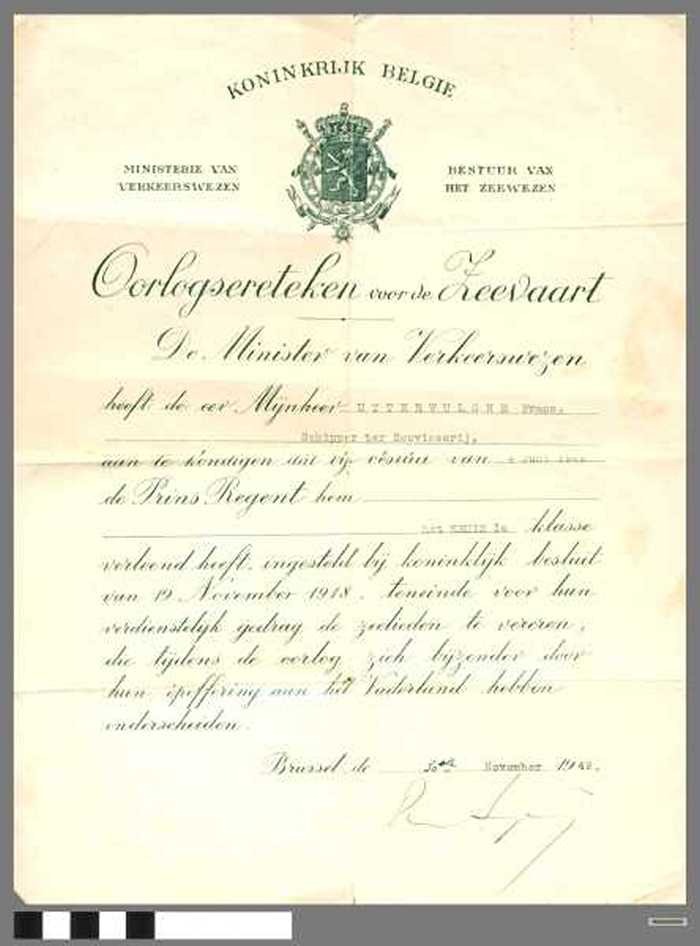 KONINKRIJK BELGIE
MINISTERIE VAN
VERKEERSWEZEN
BESTUUR VAN
HET ZEEWEZEN
Oorlogsereteken voor de Zeevaart
De Minister van Verkeerswezen
heeft de eer Mijnheer UITTERVULGHE Frans,
Schipper ter Zeevisserij,
aan te kondigen dat bij besluit van
de Prins Regent hem
het KRUIS 1e klasse
verleend heeft, ingesteld bij koninklijk besluit
van 19 November 1918, teneinde voor hun
verdienstelijk gedrag de zeelieden te vereren,
die tijdens de oorlog zich bijzonder door
hun opoffering aan het Vaderland hebben
onderscheiden.
Brussel, de November 1948.